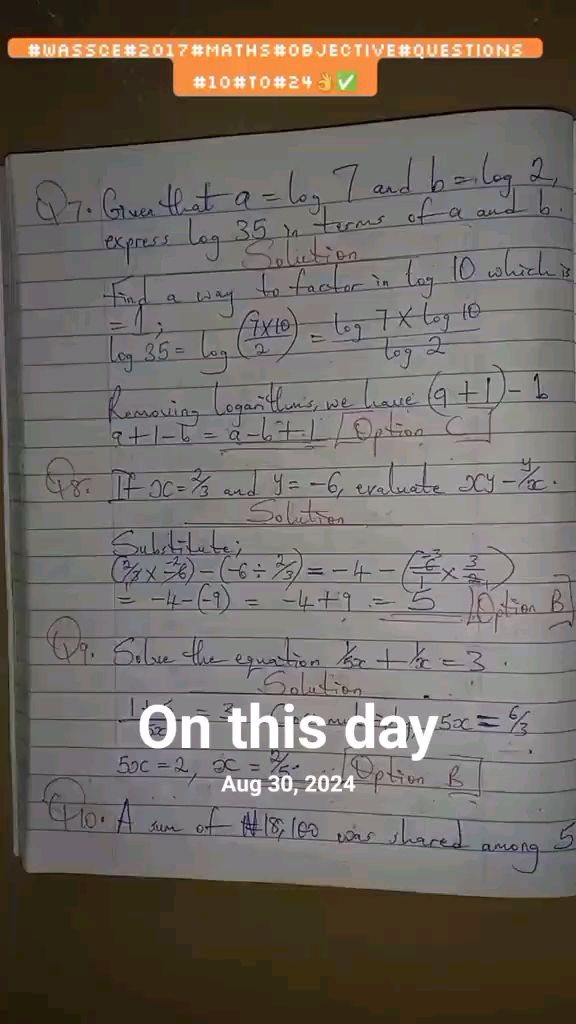 #WASSCE#2017#MATHS#OBJECTIVE#QUESTIONS
#10#TO#24👌✅
Q7. Given that a = log 7 and b = log 2,
express log 35 in terms of a and b.
Solution
Find a way to factor in log 10 which is
= 1;
log 35 = log (7×10/2) = log 7 × log 10 / log 2
Removing logarithms, we have (a + 1) - b
a + 1 - b = a - b + 1 Option C
Q8. If x = 2/3 and y = -6, evaluate xy - y/x.
Solution
Substitute;
(2/3 × -6) - (-6 ÷ 2/3) = -4 - (-6/1 × 3/2)
= -4 - (-9) = -4 + 9 = 5 Option B
Q9. Solve the equation 1/5x + 1/x = 3.
Solution
= 3 5x = 6/3
On this day
5x = 2, x = 2/5 Option B
Aug 30, 2024
Q10. A sum of ₦18,100 was shared among 5